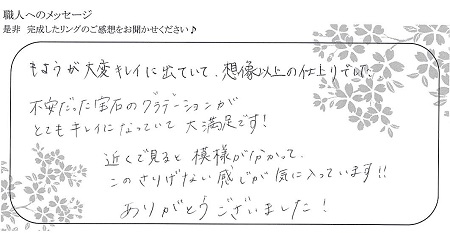 職人へのメッセージ
是非 完成したリングのご感想をお聞かせください♪
もようが大変キレイに出ていて、想像以上の仕上りでした。
不安だった宝石のグラデーションが
とてもキレイになっていて 大満足です!
近くで見ると 模様が分かって、
このさりげない感じが気に入っています!!
ありがとうございました!